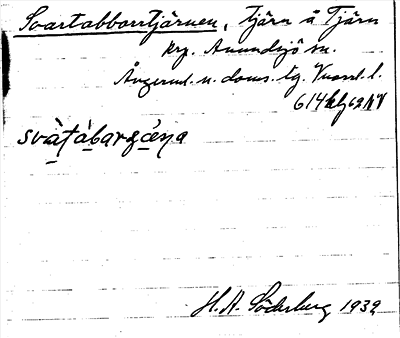 Svartabborrtjärnen, tjärn å Tjärn
kry. Anundsjö sn.
Ångerml. n. doms. tg. Vnorrl. l.
614
svàṭábarʒéṇa
H. A. Söderberg 1939